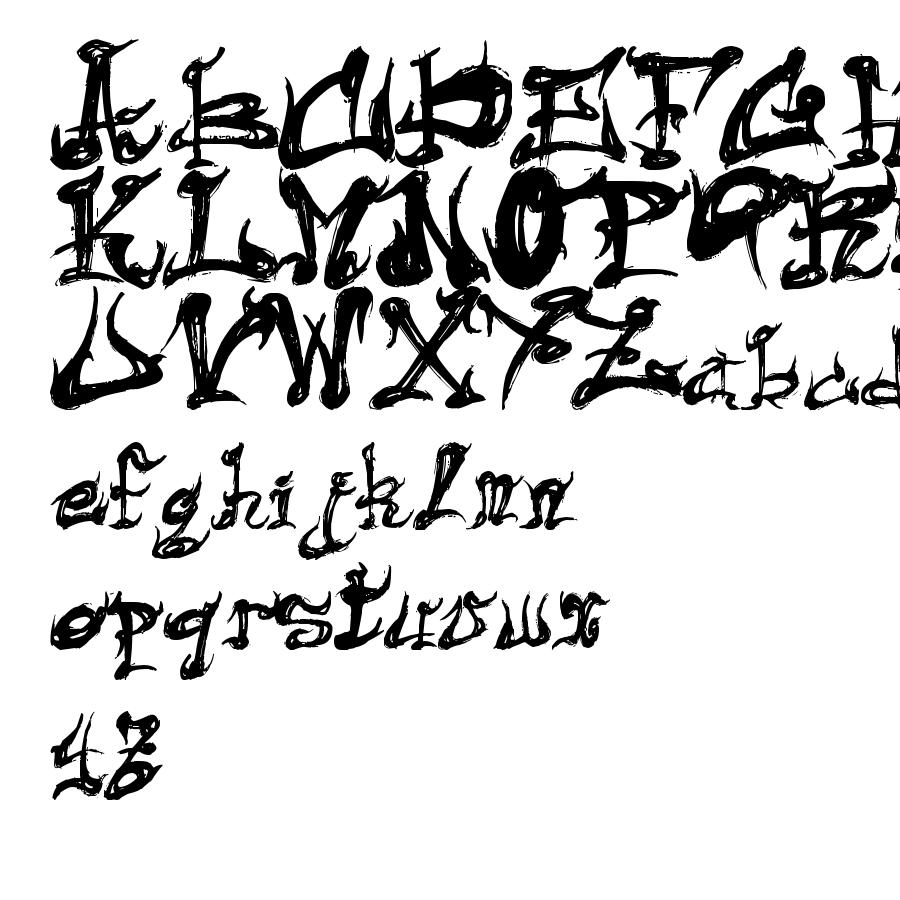 ABCDEFGH
KLMNOPQR
UVWXYZabcd
efghijklmn
opqrstuvwx
yz